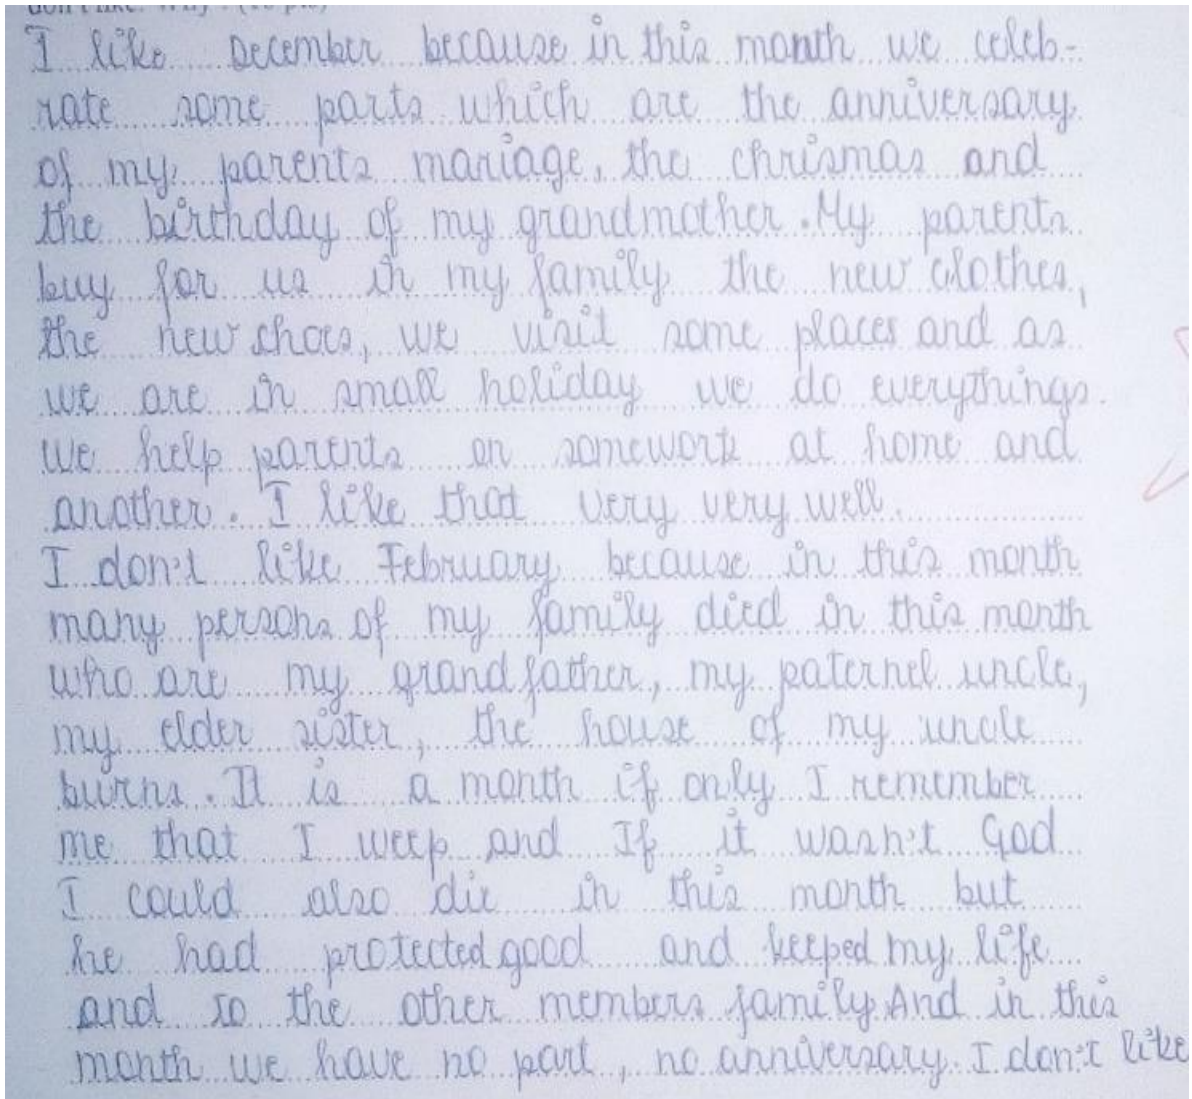 don't like. Why? (10 pts)
I like December because in this month we celeb-
rate some parts which are the anniversary
of my parents mariage, the chrismas and
the birthday of my grandmother. My parents
buy for us in my family the new clothes,
the new shoes, we visit some places and as
we are in small holiday we do everythings.
We help parents on somework at home and
another. I like that very very well.
I don't like February because in this month
many persons of my family died in this month
who are my grandfather, my paternel uncle,
my elder sister, the house of my uncle
burns. It is a month if only I remember
me that I weep and If it wasn't God
I could also die in this month but
he had protected good and keeped my life
and so the other members family. And in this
month we have no part, no anniversary. I don't like